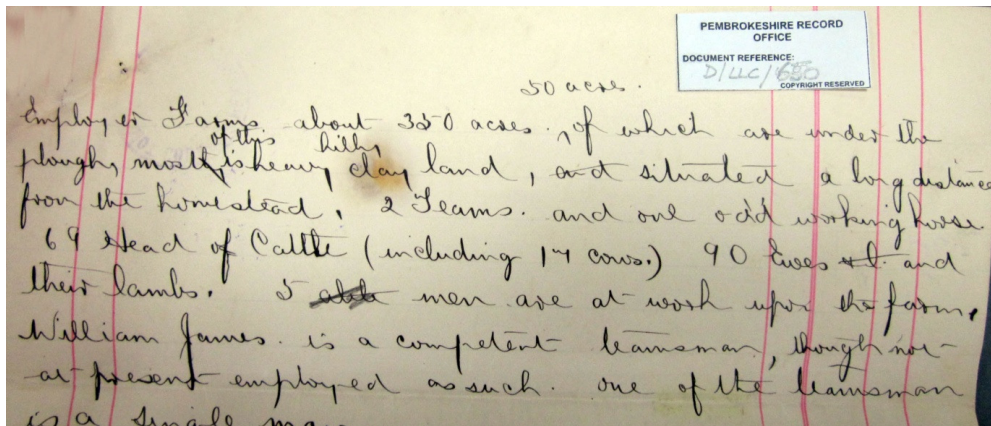 PEMBROKESHIRE RECORD
OFFICE
DOCUMENT REFERENCE:
D/LLC/650
COPYRIGHT RESERVED
50 acres.
Employer Farms about 350 acres, of which are under the
of this hilly
plough, mostly is heavy clay land, and situated a long distance
from the homestead. 2 Teams. and one odd working horse
69 Head of Cattle (including 17 cows.) 90 Ewes and
their lambs. 5 men are at work upon the farm.
William James. is a competent teamsman, though not
at present employed as such. one of the teamsman
is a single man